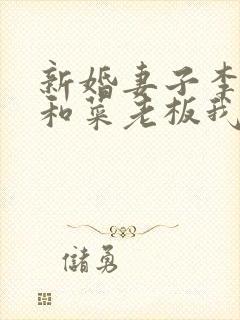 新婚妻子李
和菜老板我
储勇